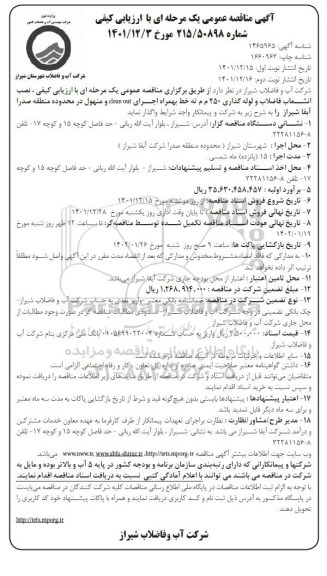 آگهی مناقصه عمومی یک مرحله ای با ارزیابی کیفی
شماره ۲۱۵/۵۰۸۹۸ مورخ ۱۴۰۱/۱۲/۳
شرکت آب و فاضلاب شهرستان شیراز
شناسه آگهی: ۱۴۶۵۹۶۵
شناسه چاپ: ۱۶۶۰۹۶۳
تاریخ انتشار نوبت اول: ۱۴۰۱/۱۲/۱۵
تاریخ انتشار نوبت دوم: ۱۴۰۱/۱۲/۱۶
شرکت آب و فاضلاب شیراز در نظر دارد از طریق برگزاری مناقصه عمومی یک مرحله ای با ارزیابی کیفی، نصب
انشعاب فاضلاب و لوله گذاری ۲۵۰ م م ته خط بهمراه اجرای clean out و منهول در محدوده منطقه صدرا
آبفا شیراز را به شرح زیر به شرکت و پیمانکار واجد شرایط واگذار نماید.
۱- نشانی دستگاه مناقصه گزار: آدرس شیراز، بلوار آیت الله ربانی - حد فاصل کوچه ۱۵ و کوچه ۱۷- تلفن
۸-۳۲۲۸۱۱۵۶
۲- محل اجرا: شهرستان شیراز ( محدوده منطقه صدرا شرکت آبفا شیراز )
۳- مدت اجرا: ۱۵ (پانزده) ماه شمسی.
۴- محل اخذ اسناد مناقصه و تسلیم پیشنهادات: شیراز - بلوار آیت الله ربانی - حد فاصل کوچه ۱۵ و کوچه
۱۷- تلفن ۸-۳۲۲۸۱۱۵۶
۵- برآورد اولیه: ۳۵,۶۳۰,۴۵۸,۴۵۷ ریال.
۶- تاریخ شروع فروش اسناد مناقصه: روز دوشنبه مورخ ۱۴۰۱/۱۲/۱۵
۷- تاریخ نهائی فروش اسناد مناقصه: تا پایان وقت اداری روز یکشنبه مورخ ۱۴۰۱/۱۲/۲۸
۸- تاریخ نهائی عودت اسناد مناقصه تکمیل شده توسط مناقصه گر: تا ساعت ۱۲ ظهر روز شنبه مورخ
۱۴۰۲/۰۱/۱۹
۹- تاریخ بازگشایی پاکت ها: ساعت ۹ صبح روز شنبه مورخ ۱۴۰۲/۰۱/۲۶
۱۰- به مدارکی که فاقد امضاء،مشروط،مخدوش و مدارکی که بعد از انقضاء مدت مقرر در این آگهی واصل شود مطلقاً
ترتیب اثر داده نخواهد شد.
۱۱- محل تامین اعتبار: اعتبار از محل بودجه جاری شرکت آبفا شیراز می‌باشد.
۱۲- مبلغ تضمین شرکت در مناقصه: ۱,۲۶۸,۹۱۴,۰۰۰ ریال.
۱۳- نوع تضمین شرکت در مناقصه: ضمانتنامه بانکی معتبر
جاری شرکت آب و فاضلاب شیراز
۱۵- سایر اطلاعات و جزئیات مربوطه در اسناد مناقصه درج شده است.
۱۷- اعتبار پیشنهادها: پیشنهادها بایستی بدون هیچگونه قید و شرط از تاریخ بازگشایی پاکات به مدت سه ماه معتبر
و برای سه ماه دیگر قابل تمدید باشد.
۱۸- مدیر طرح/مشاور/نظارت: نظارت براجرای تعهدات پیمانکار از طرف کارفرما به عهده معاون خدمات مشترکین
و درآمد شرکت آبفا شیراز می باشد. به نشانی: شیراز، بلوار آیت الله ربانی - حد فاصل کوچه ۱۵ و کوچه ۱۷- تلفن
۸-۳۲۲۸۱۱۵۶
وب سایت جهت اطلاعات بیشتر آگهی مناقصه http://iets.mporg.ir، www.abfa-shiraz.ir می‌باشد.
شرکتها و پیمانکارانی که دارای رتبه‌بندی سازمان برنامه و بودجه کشور در پایه ۵ آب و بالاتر بوده و مایل به
شرکت در مناقصه می باشند می توانند با اعلام آمادگی کتبی نسبت به دریافت اسناد مناقصه اقدام نمایند.
http://iets.mporg.ir
شرکت آب وفاضلاب شیراز